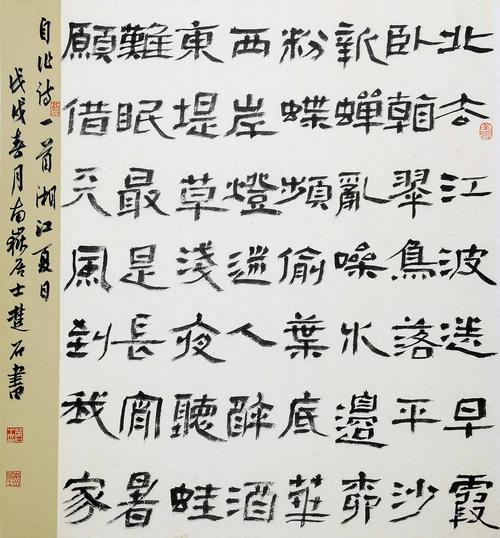 北去江波送早霞
卧看翠鳥落平沙
新蟬亂噪水邊柳
粉蝶頻偷葉底華
西岸燈迷人醉酒
東堤草淺夜聽蛙
難眠最是長宵暑
願借天風到我家
自作詩一首湘江夏日
戊戌春月南嶽居士楚石書